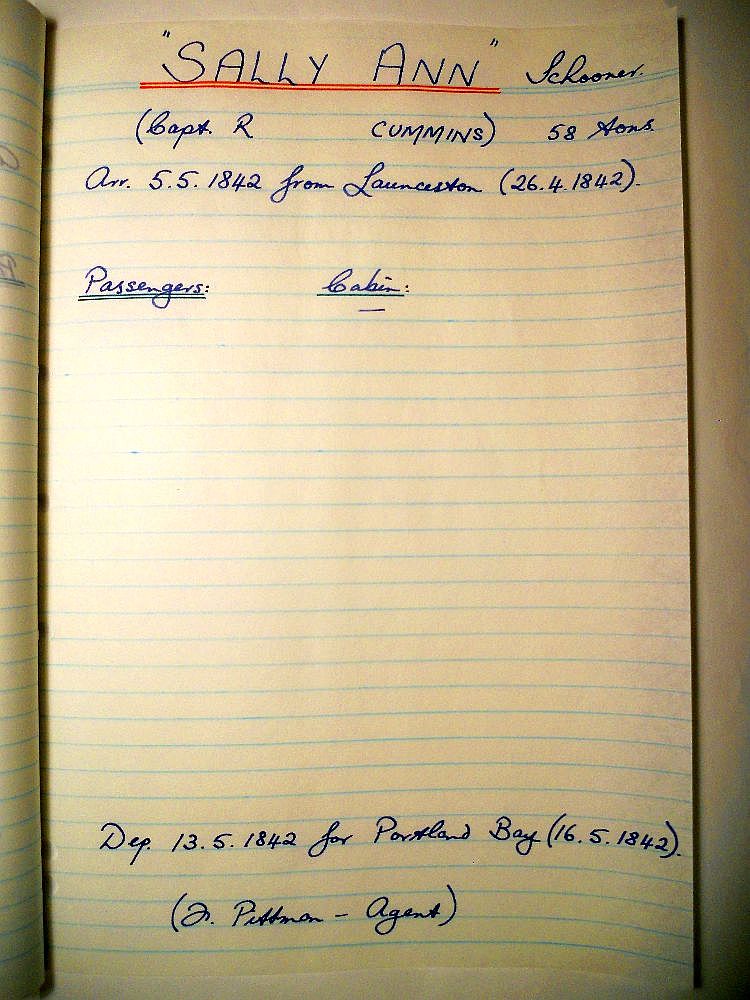 "SALLY ANN" Schooner.
(Capt. R CUMMINS) 58 tons.
Arr. 5.5.1842 from Launceston (26.4.1842).
Passengers: Cabin:
—
Dep. 13.5.1842 for Portland Bay (16.5.1842).
Pittman – Agent)